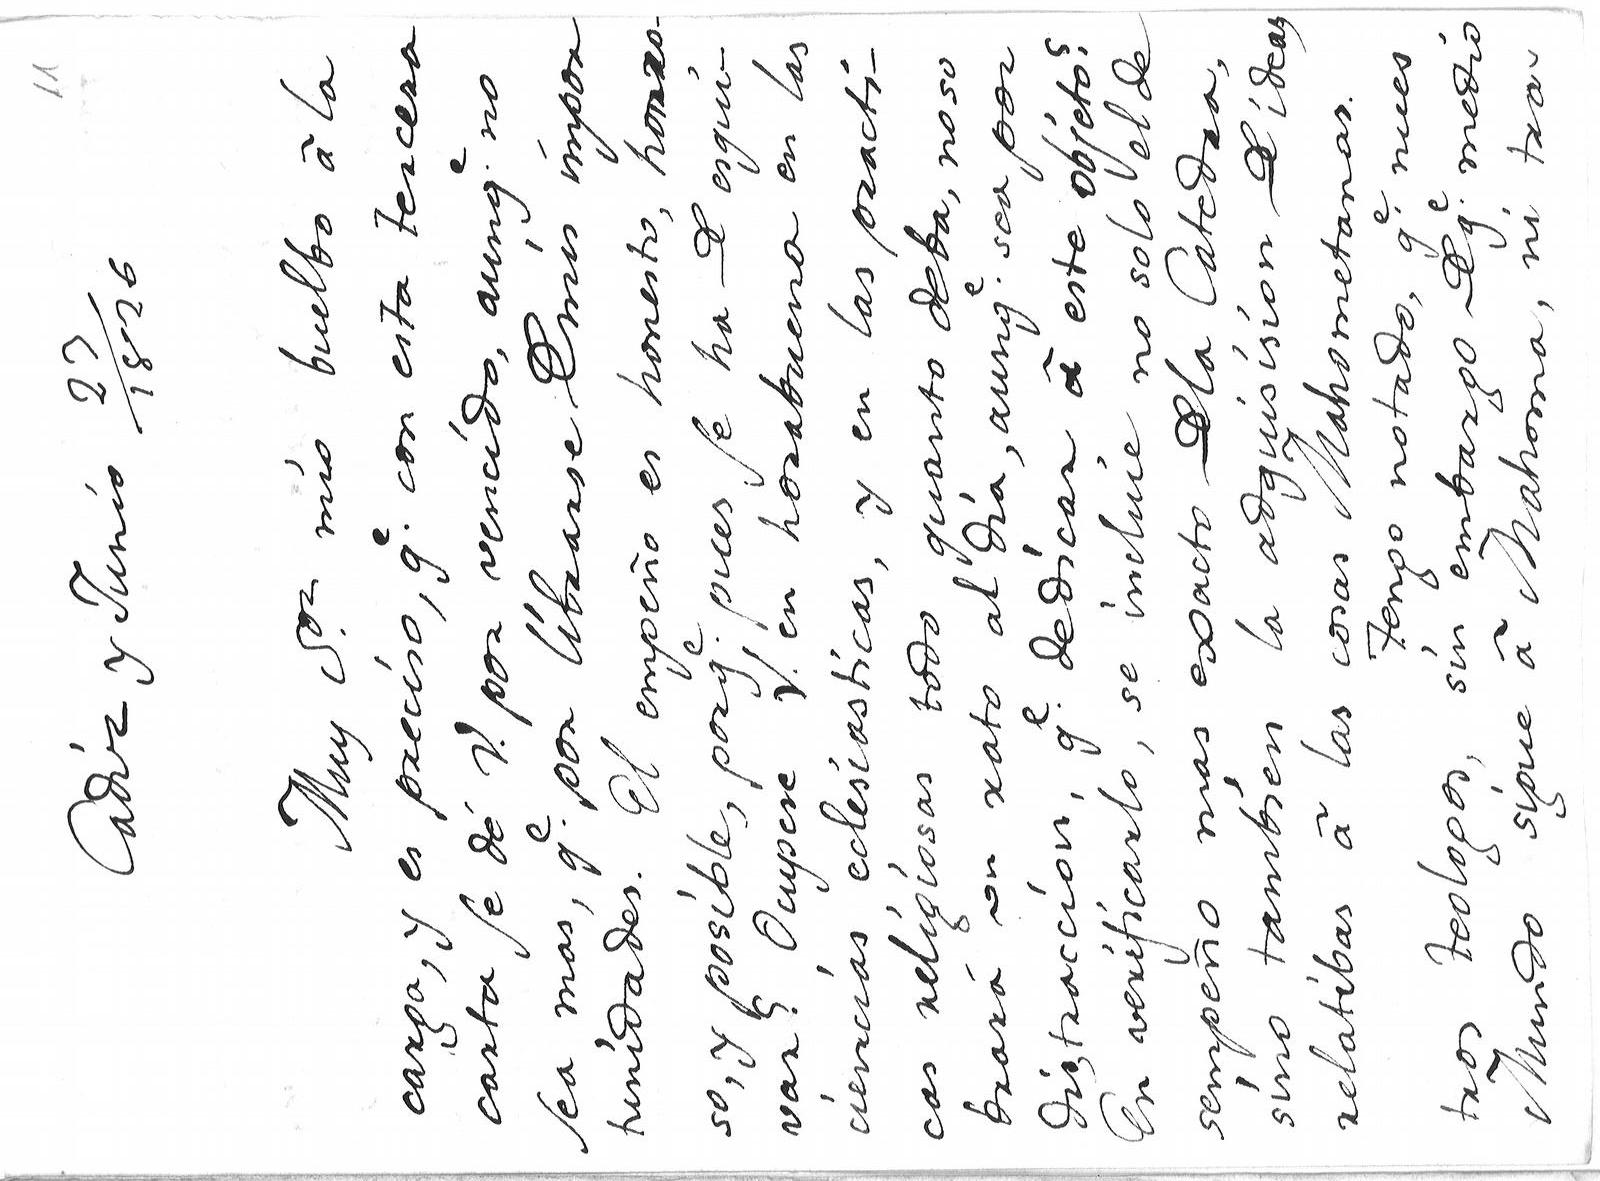 11
Cadiz y Junio 23/1826
Muy Sor. mio buelbo â la
carga, y es preciso, qe. con esta tercera
carta se dé V. por vencido, aunqe. no
sea mas, qe. por librarse De mis impor
tunidades. El empeño es honesto, honro-
so, y posible, porqe. pues se ha De esqui-
var? Ocupese V. en horabuena en las
ciencias eclesiasticas, y en las practi-
cas religiosas todo quanto deba, no so
brará un rato al dia, aunqe. sea por
distraccion, qe. dedicar â este objeto?
En verificarlo, se incluie no solo el de
sempeño mas exacto De la Catedra,
sino tambien la adquisision De ideas
relatibas â las cosas Mahometanas.
Tengo notado, qe. nues
tros teologos, sin embargo De qe. medio
Mundo sigue â Mahoma, ni tra-